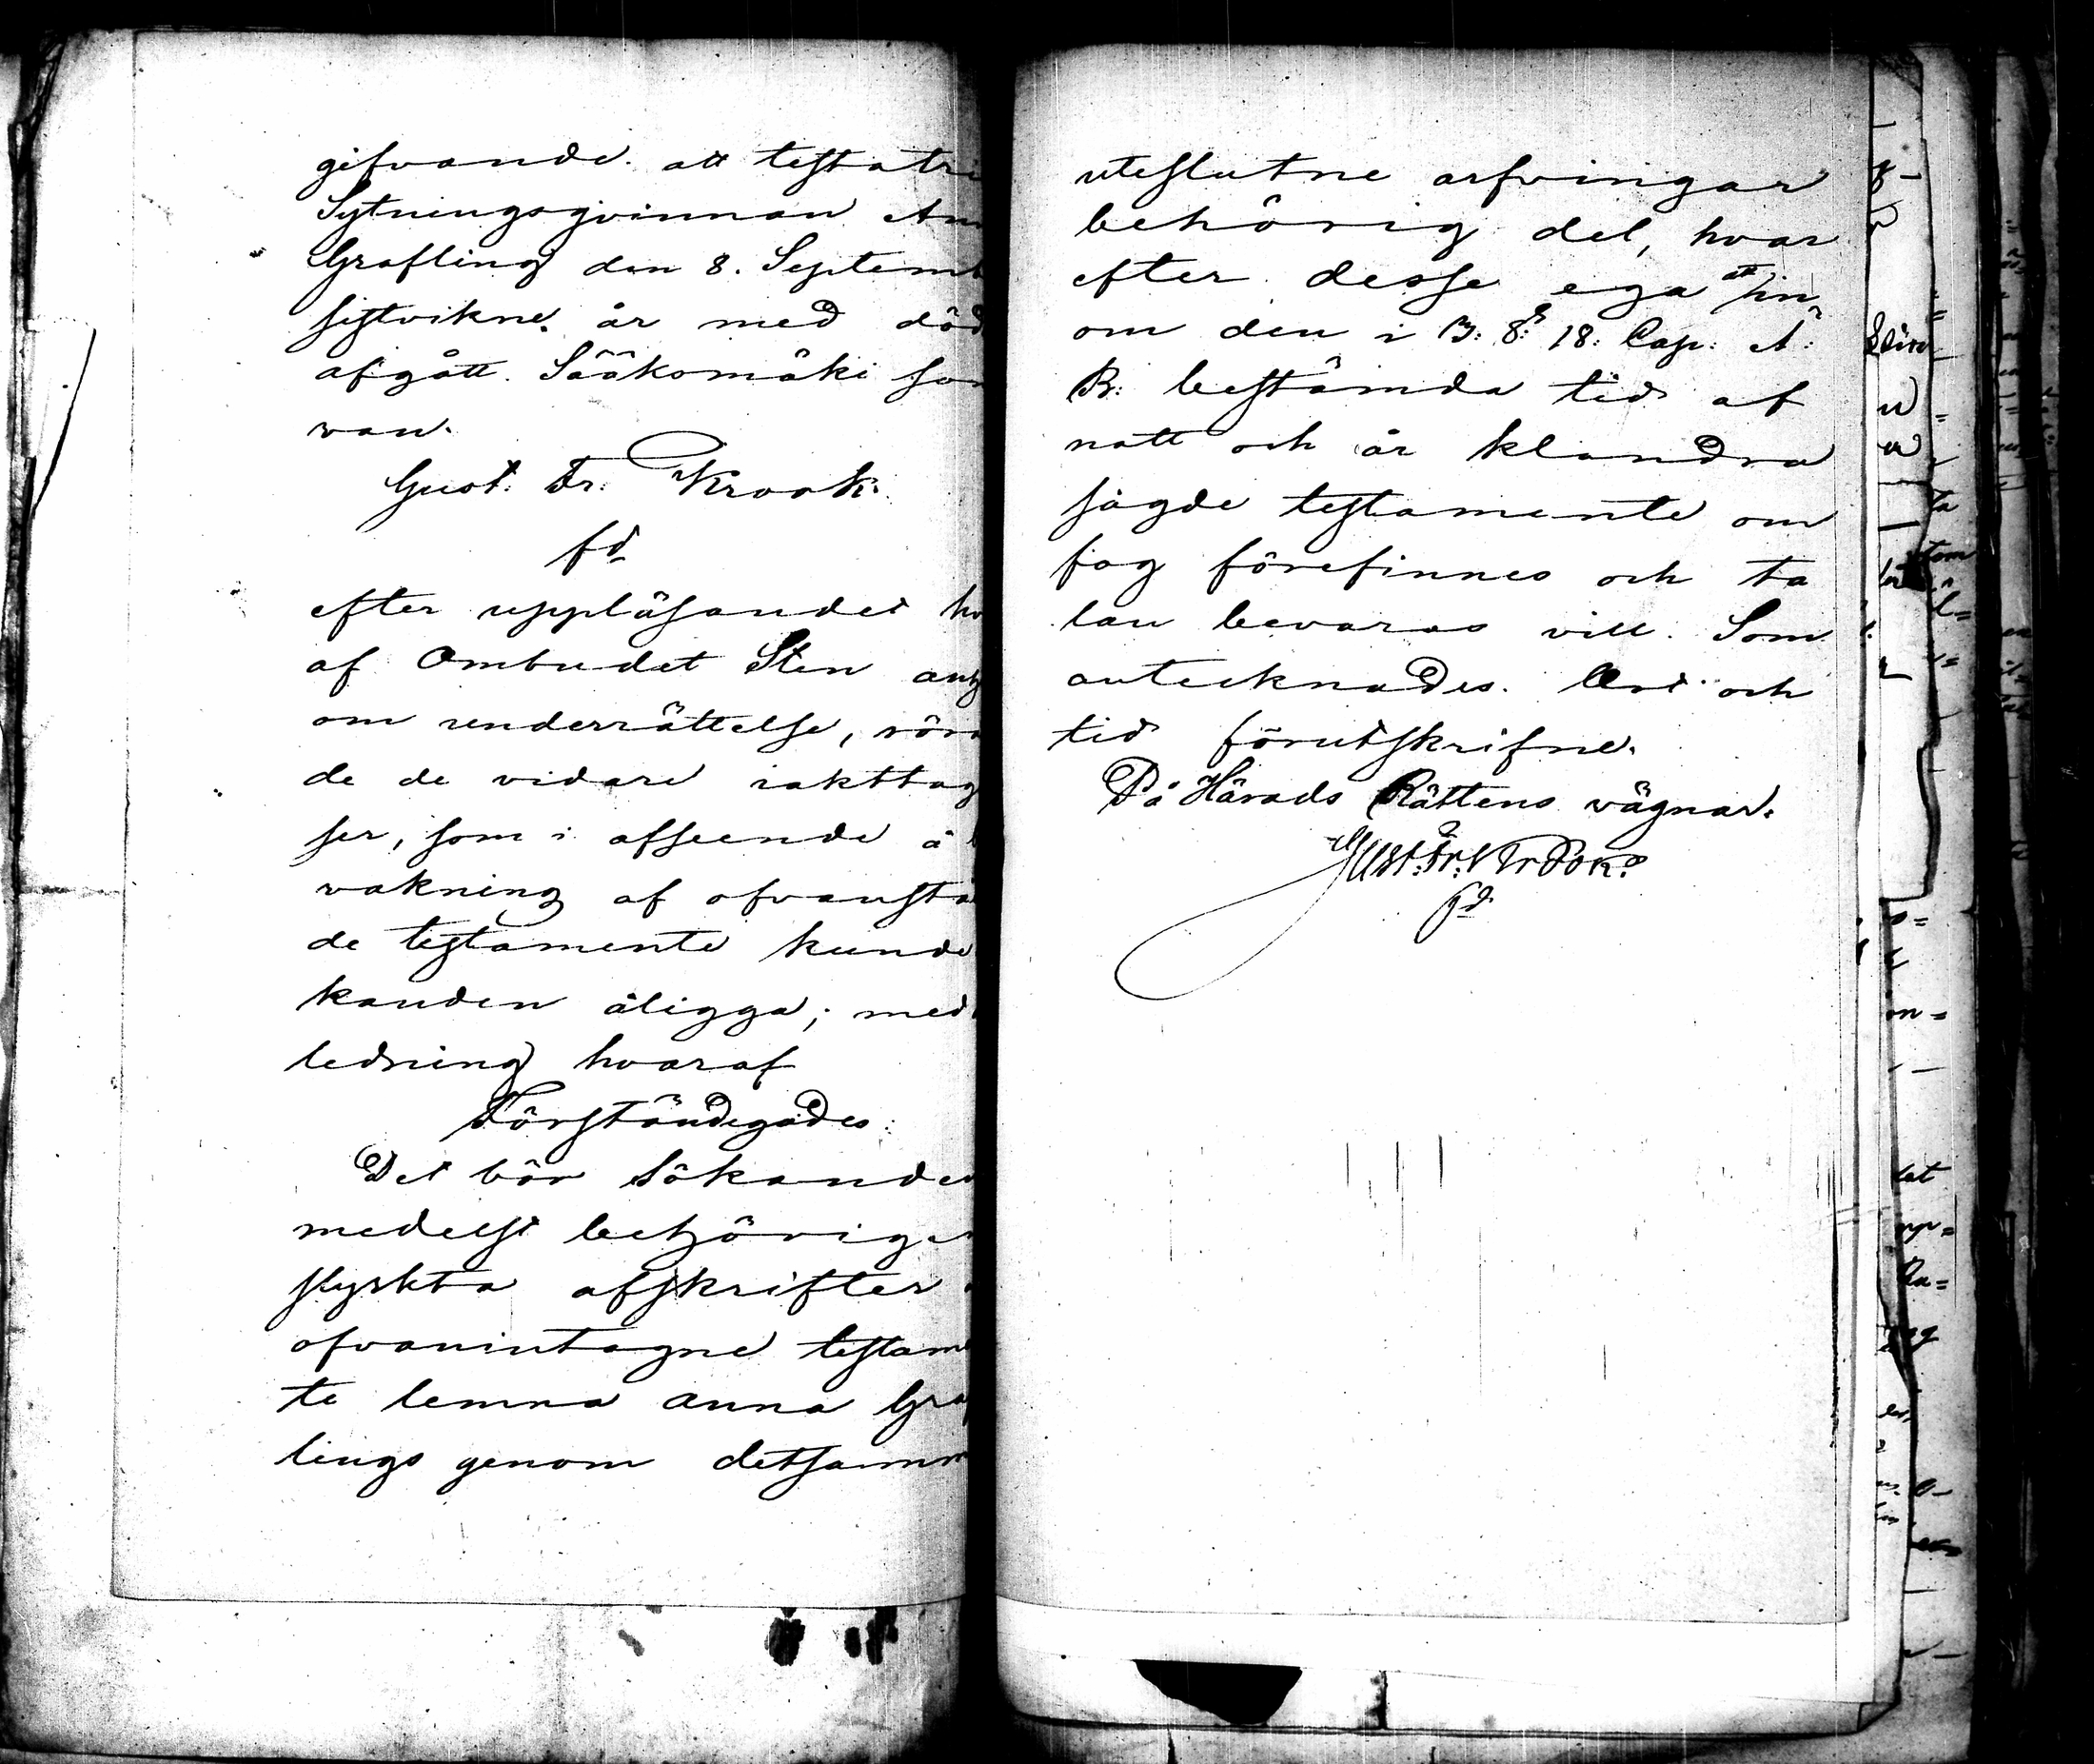 gifvande. att testatri
Sytningsqvinnan Ann
Grafling den 8. Septemb
sistvikne. år med död
afgått. Sääksmäki som
van.
Gust. Fr. Krook.
fd
efter uppläsandet hv
af Ombudet Sten anh
om underrättelse, röra
de de vidare iakttag
ser, som i afseende å
vakning af ofvanstå
de testamente kunde
kanden åligga; med
ledning hvaraf
Förständigades:
Det bör Sökanden
medelst behörigen
styrkta afskrifter
ofvanintagne testam
te lemna Anna Graf
lings genom detsamm
uteslutne arfvingar
behörig del, hvar
efter desse ega att in
om den i 3: 8: § 18: Cap: Ä:
B: bestämda tid af
natt och år klandra
sagde testamente om
fog förefinnes och ta
lan bevaras vill. Som
antecknades. Ort och
tid förutskrifne.
På Härads Rättens vägnar.
Gust. Fr. Krook.
fd